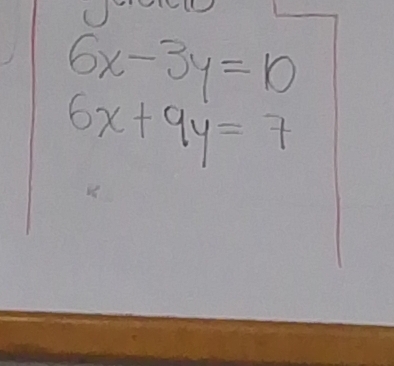 6x-3y=10
6x+9y=7